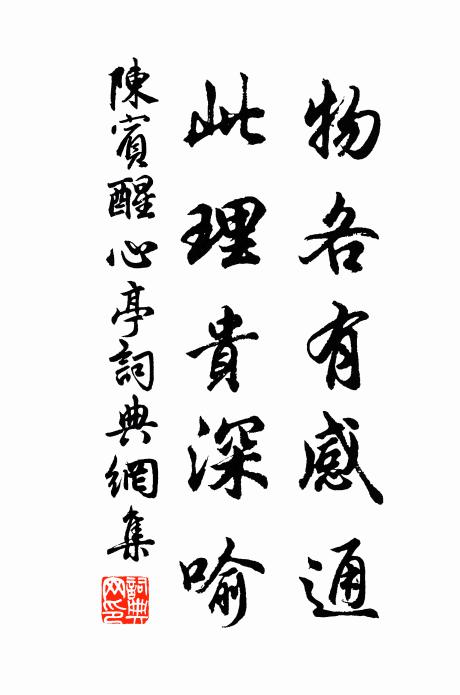 物各有感通
此理貴深喻
陳賓醒心亭詞典網集
詞典网印